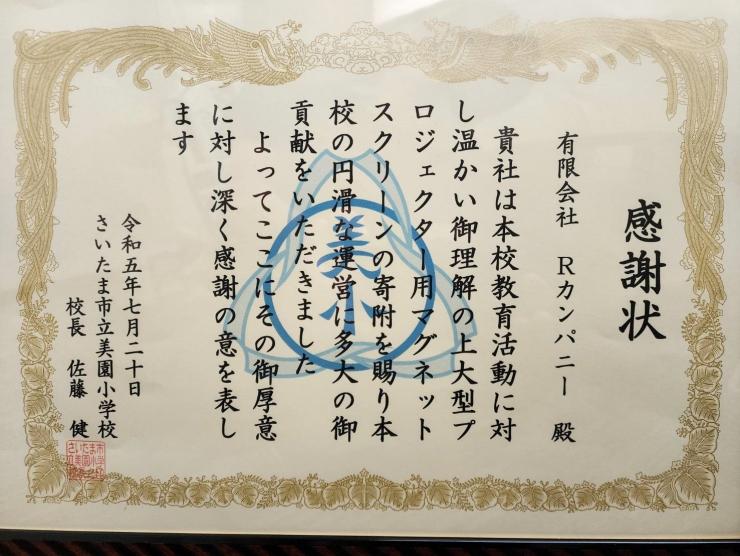 感謝状
有限会社 Rカンパニー 殿
貴社は本校教育活動に対
し温かい御理解の上大型プ
ロジェクター用マグネット
スクリーンの寄附を賜り本
校の円滑な運営に多大の御
貢献をいただきました
よってここにその御厚意
に対し深く感謝の意を表し
ます
令和五年七月二十日
さいたま市立美園小学校
校長 佐藤 健
美小